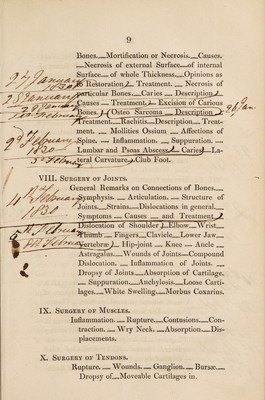 9
Bones.—Mortification or Necrosis.—Causes.
—Necrosis of external Surface.—of internal
Surface.—of whole Thickness.—Opinions as
to Restoration.—Treatment.—Necrosis of
particular Bones.—Caries—Description.—
Causes—Treatment.—Excision of Carious
Bones.—Osteo Sarcoma—Description—
Treatment.—Rachitis—Description—Treat-
ment.—Mollities Ossium—Affections of
Spine.—Inflammation.—Suppuration.—
Lumbar and Psoas Abscess.—Caries.—La-
teral Curvature.—Club Foot.
27 January
1830
28 January
29 January
26 Jan.
2d February
1830
3d February
VIII. SURGERY OF JOINTS.
General Remarks on Connections of Bones.—
Symphysis.—Articulation.—Structure of
Joints.—Strains.—Dislocations in general.—
Symptoms—Causes—and Treatment.—
Dislocation of Shoulder.—Elbow.—Wrist
Thumb—Fingers.—Clavicle.—Lower Jaw—
Vertebræ.—Hip-joint—Knee—Ancle—
Astragalus.—Wounds of Joints—Compound
Dislocation.—Inflammation of Joints.—
Dropsy of Joints.—Absorption of Cartilage.
—Suppuration.—Anchylosis.—Loose Carti-
lages.—White Swelling.—Morbus Coxarius.
4th February
1830
5th February
IX. SURGERY OF MUSCLES.
Inflammation.—Rupture.—Contusions.—Con-
traction.—Wry Neck.—Absorption.—Dis-
placements.
X. SURGERY OF TENDONS.
Rupture.—Wounds.—Ganglion.—Bursæ.—
Dropsy of.—Moveable Cartilages in.